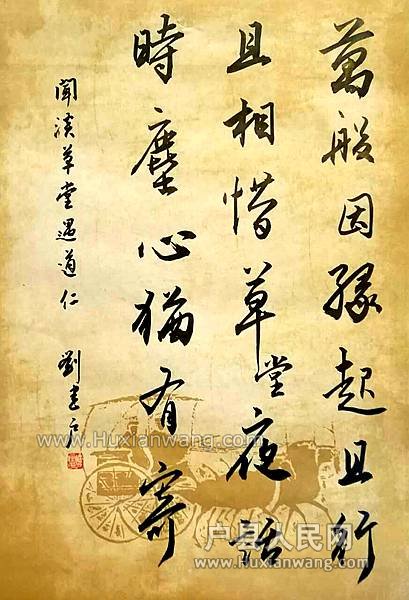 萬般因緣起且行
且相惜草堂夜話
時塵心猶有寄
聞渼草堂遇道仁
劉
www.Huxianwang.com
户县人民网
www.huxianwang.com